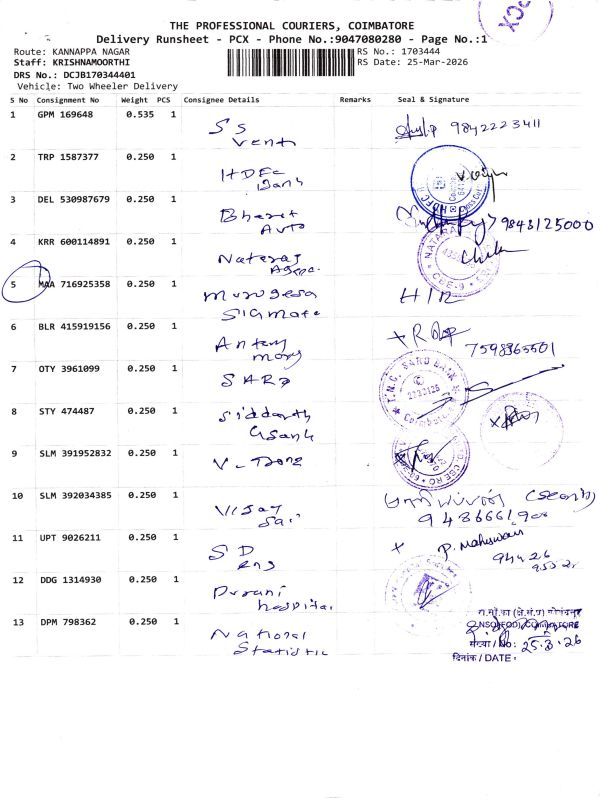 PCX
THE PROFESSIONAL COURIERS, COIMBATORE
Delivery Runsheet - PCX - Phone No.:9047080280 - Page No.:1
Route: KANNAPPA NAGAR RS No.: 1703444
Staff: KRISHNAMOORTHI RS Date: 25-Mar-2026
DRS No.: DCJB170344401
Vehicle: Two Wheeler Delivery
S No Consignment No Weight PCS Consignee Details Remarks Seal & Signature
1 GPM 169648 0.535 1 SS 9842223411
Venti
2 TRP 1587377 0.250 1 HDFC
Bank
3 DEL 530987679 0.250 1 Bharat 9843125000
Auto
4 KRR 600114891 0.250 1 Nataraj
5 MAA 716925358 0.250 1 Murugesa
6 BLR 415919156 0.250 1 Antony 7598365501
7 OTY 3961099 0.250 1 SARD
T.N.C. SARD BANK
8 STY 474487 0.250 1 Siddarth
9 SLM 391952832 0.250 1
10 SLM 392034385 0.250 1 Vijay
Sai
11 UPT 9026211 0.250 1 SD P. Maheswari
Eng 94426
12 DDG 1314930 0.250 1 Durani
hospital
13 DPM 798362 0.250 1 National
Statistic
NSO(FOD),COIMBATORE
संख्या / No: 25.3.26
दिनांक / DATE :